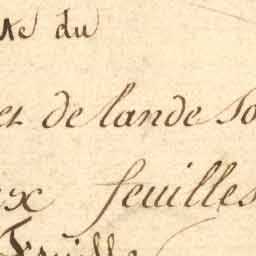 te du
et de lande so
x feuilles
feuille